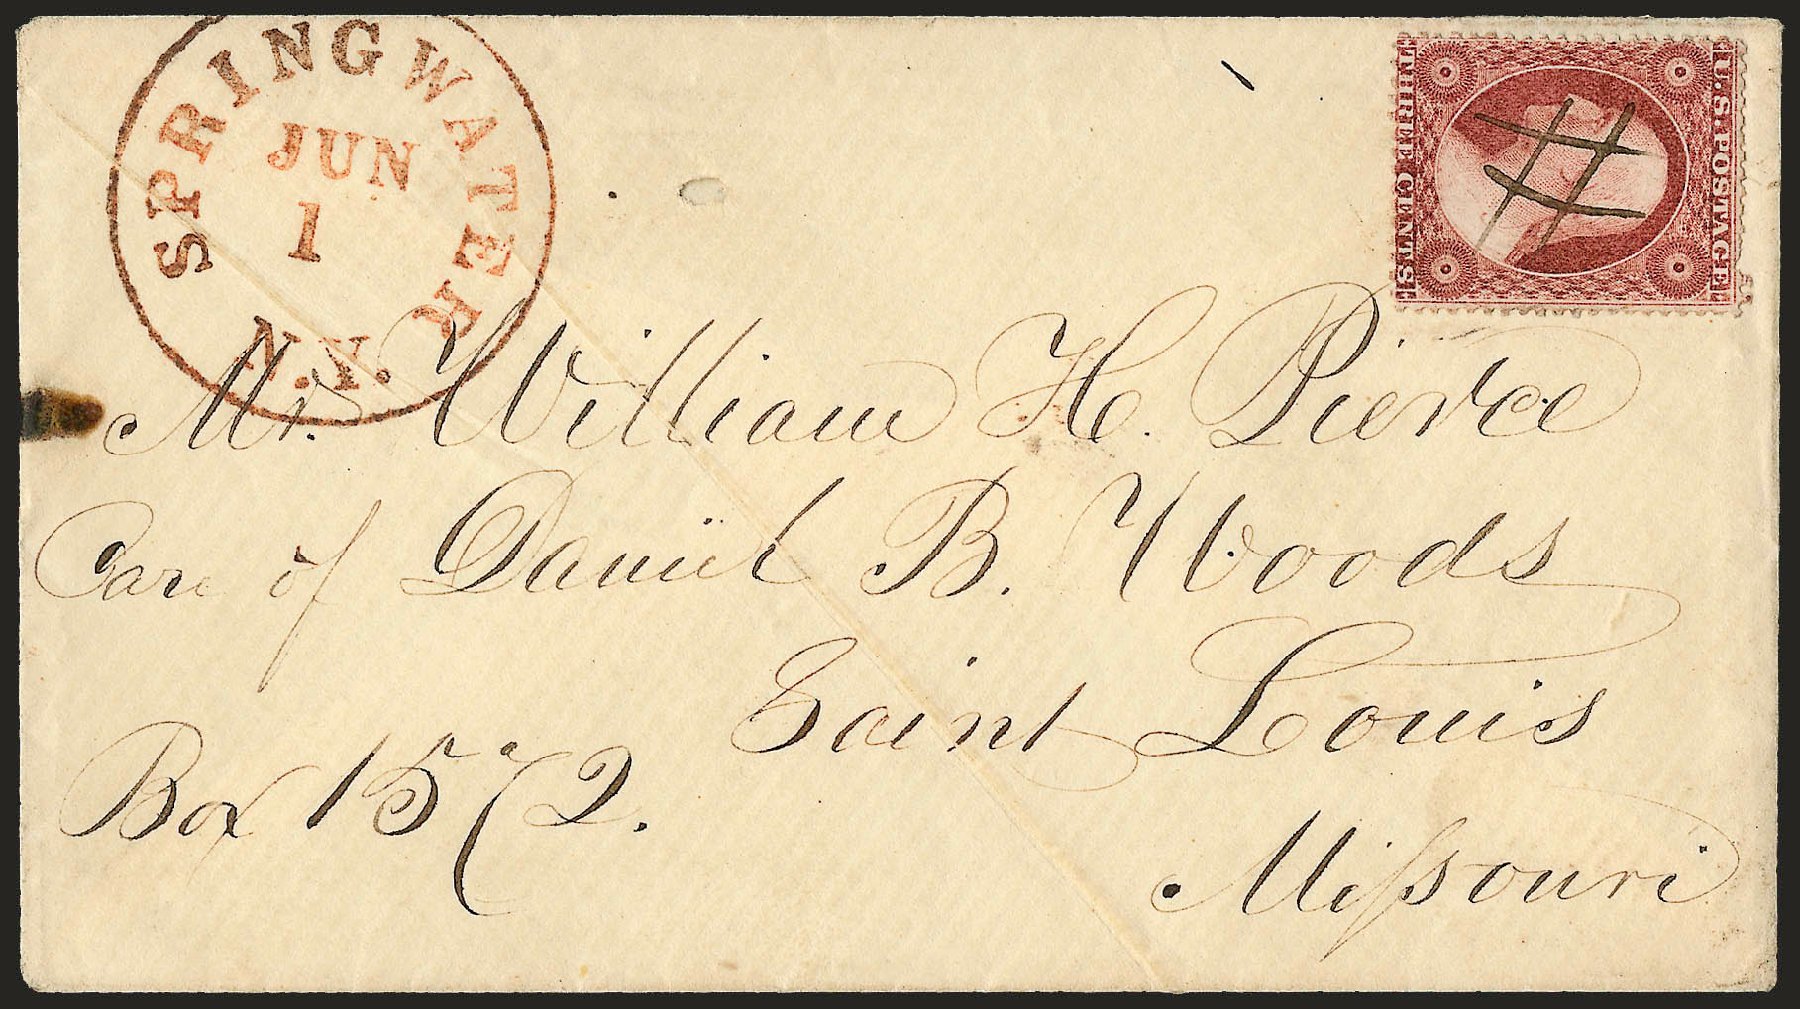 SPRINGWATER
JUN
1
N.Y.
U.S. POSTAGE
THREE CENTS
Mr. William H. Pierce
Care of Daniel B. Woods
Saint Louis
Box 1572.
Missouri